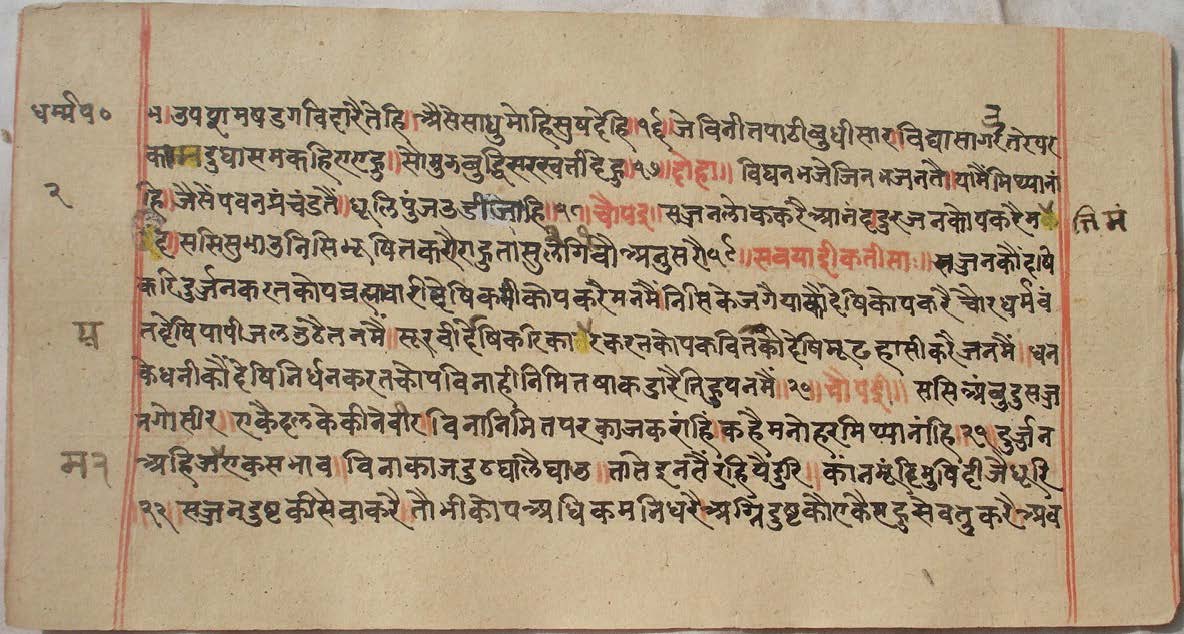 धर्म्मप०
२
म॥उपग्रामषडगविदारैतेहि॥अैसेसाधुमोहिसुषदेहि॥१६॥जेविनीतपाठीबुधीसार॥विद्यासागरतेरपर
काम दुघासमकहिएएहु॥सोमुझबुद्धिसरस्वतीदेहु॥१७॥दोहा॥विघनभजेजिनभजनतै॥यामैंमिथ्यानां
हि॥जैसेंपवनप्रंचंडतैं॥धूलिपुंजउडीजाहि॥१८॥चौपई॥सज्जनलोककरैआनंद॥दुरजनकोपकरैम
तिमं
द॥ससिसुभाउनिसिभूषितकरै॥राहुतासुलगिचौअनुसरै॥१९॥सवयाईकतीसा॥सज्जनकौंदेषि
करिदुर्जनकरतकोपब्रह्मचारीदेषिकमीकोपकरैमनमैं॥निसिकेजगैयाकौंदेषिकोपकरैचोरधर्मवं
तदेषिपापीजलउठैतनमैं॥सूरवीर्देषिकरिकायरकरतकोपकवितकौंदेषिमूढहासीकरैजनमैं॥धन
केधनीकौंदेषिनिर्धनकरतकोपविनाहीनिमितषाकडारैतिहुपनमैं॥२०॥चौपई॥ससिअंबुदुसज्ज
नगोसीर॥एकैहलकेकीनेवीर॥विनानिमितपरकाजकरांहिं॥कहैमनोहरमिथ्यानांहि॥२१॥दुर्जन
अहिअरुएकसभाव॥विनाकाजदुठघालैघाउ॥तातेइनतैंरहियैदूरि॥कांनमूंदिमुषिदीजैधूरि
॥२२॥सज्जनदुष्टकीसेवाकरै॥तौभीकोपअधिकमनिधरै॥अग्निदुष्टकौएकैसदुसेवतुकरैअव